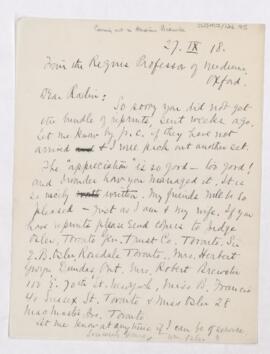 27. IX 18.
From the Regius Professor of Medicine,
Oxford.
Dear Rabin: So sorry you did not get
the bundle of reprints, sent weeks ago.
Let me know by p.c. if they have not
arrived & I will pick out another set.
The "appreciation" is so good – too good!
and I wonder how you managed it. It is
so nicely written. My friends will be so
pleased – just as I am & my wife. If you
have reprints please send copies to Judge
Osler, Toronto Gen. Trust Co. Toronto. Sir
E.B. Osler Rosedale Toronto, Mrs. Herbert
Gwyn, Dundas, Ont., Mrs. Robert Brewster
E. 70th St. New York, Miss B. Francis
40 Sussex St. Toronto & Miss Osler 28
Toronto.
Let me know at any time if I can be of service
Sincerely yours, Wm Osler